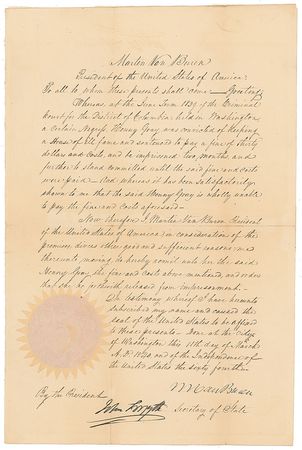 Martin Van Buren
President of the United States of America:
To all to whom these presents shall come Greeting
Whereas, at the June Term 1839 of the Criminal
Court for the District of Columbia held in Washington
a certain Negress Henny Gray was convicted of keeping
a House of Ill fame and sentenced to pay a fine of thirty
dollars and costs and be imprisoned two months and
further to stand committed until the said fine and costs
were paid. And whereas it has been satisfactorily
shown to me that the said Henny Gray is wholly unable
to pay the fine and costs aforesaid
Now therefore I Martin Van Buren President
of the United States of America in consideration of the
premises, divers other good and sufficient reasons me
thereunto moving, do hereby remit unto her the said
Henny Gray, the fine and costs above mentioned, and order
that she be forthwith released from imprisonment.
In testimony whereof I have hereunto
subscribed my name and caused the
seal of the United States to be affixed
to these presents. Done at the City
of Washington this 11th day of March
A.D. 1840 and of the Independence of
the United States the sixty fourth
M Van Buren
By the President
John Forsyth Secretary of State